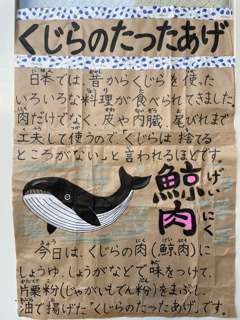 くじらのたつたあげ
日本では昔からくじらを使った
いろいろな料理が食べられてきました。
肉だけでなく、皮や内臓、尾びれまで
工夫して使うので「くじらは捨てる
ところがない」と言われるほどです。
げい にく
鯨肉
今日は、くじらの肉(鯨肉)に
しょうゆ、しょうがなどで味をつけて、
片栗粉(じゃがいもでん粉)をまぶし、
油で揚げた「くじらのたつたあげ」です。